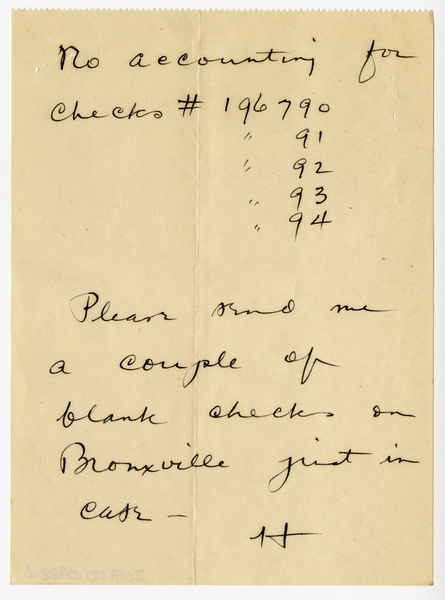 No accounting for
checks # 196790
" 91
" 92
" 93
" 94
Please send me
a couple of
blank checks on
Bronxville just in
case -
H